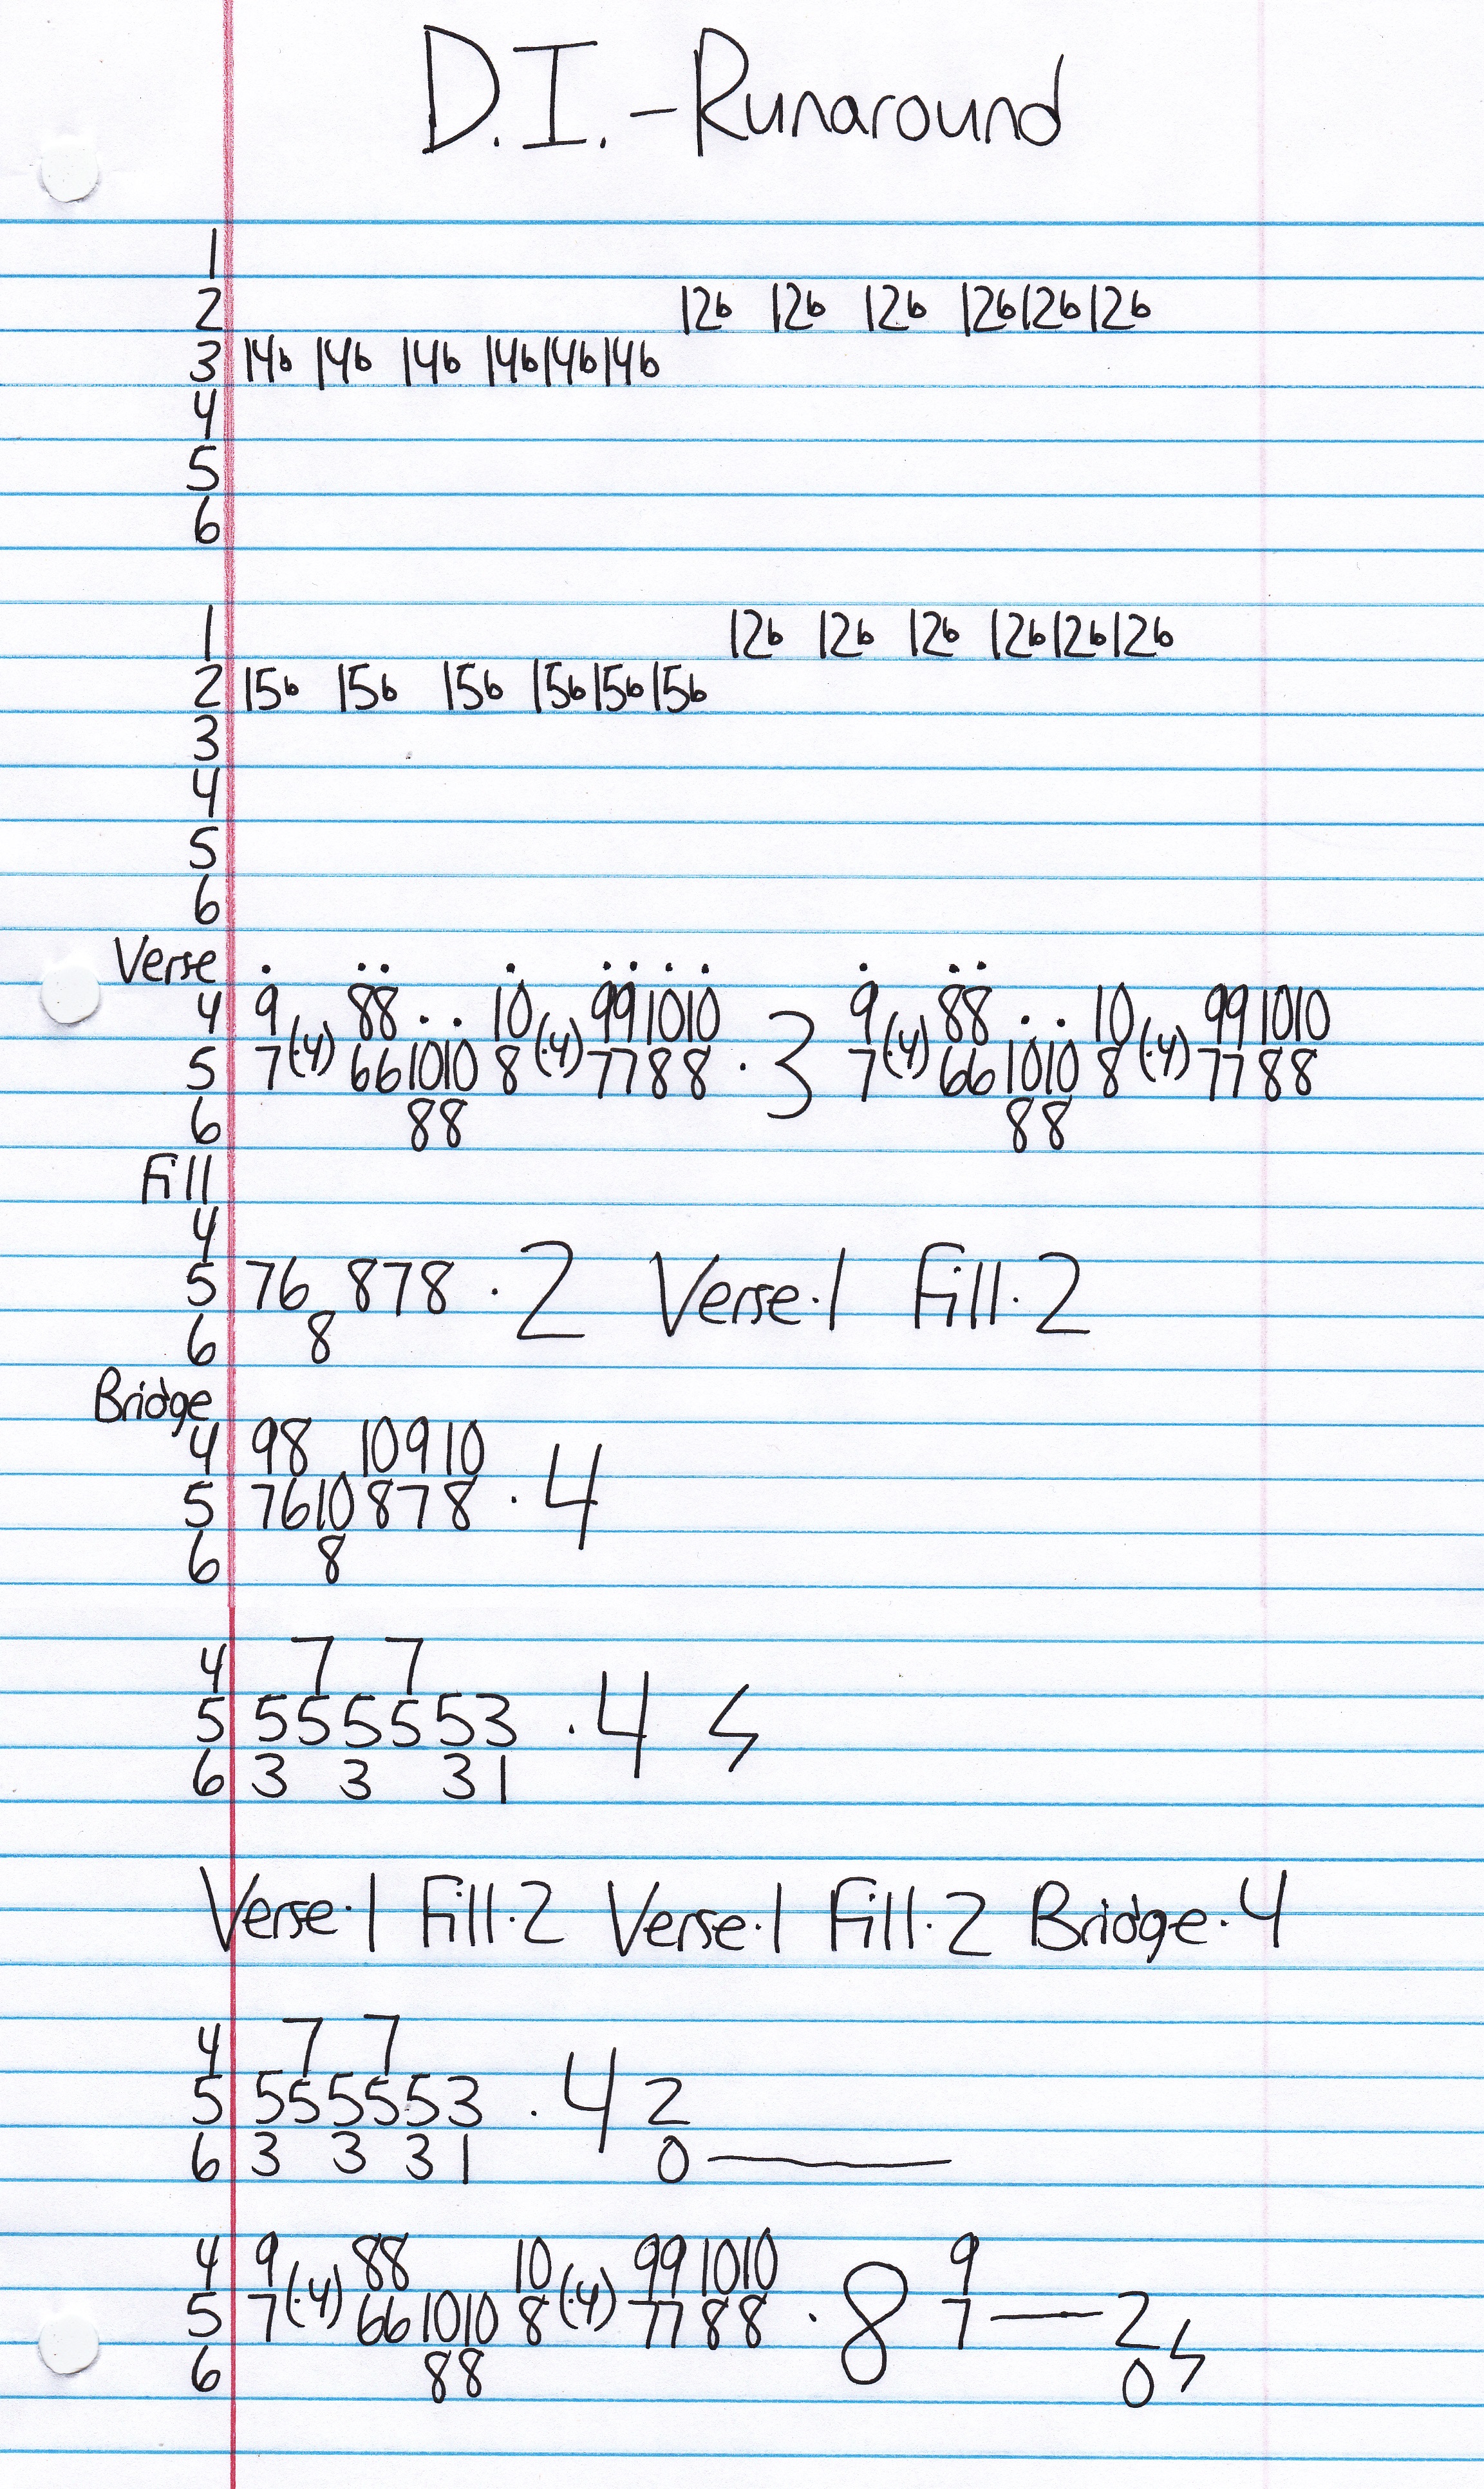 D.I. - Runaround
1
2 12b 12b 12b 12b 12b 12b
3 14b 14b 14b 14b 14b 14b
4
5
6
1 12b 12b 12b 12b 12b 12b
2 15b 15b 15b 15b 15b 15b
3
4
5
6
Verse . .. . .... . ..
4 9 88 .. 10 991010 9 88 .. 10 991010
5 7(·4) 661010 8(·4) 7788 ·3 7(·4) 661010 8(·4) 7788
6 88 88
Fill
4
5 76 878 ·2 Verse·1 Fill·2
6 8
Bridge
4 98 10910
5 7610878 ·4
6 8
4 7 7
5 555553 ·4 ϟ
6 3 3 31
Verse·1 Fill·2 Verse·1 Fill·2 Bridge·4
4 7 7
5 555553 ·4 2
6 3 3 31 0—
4 9 88 10 991010 9
5 7(·4) 661010 8(·4) 7788 ·8 7—2 ϟ
6 88 0